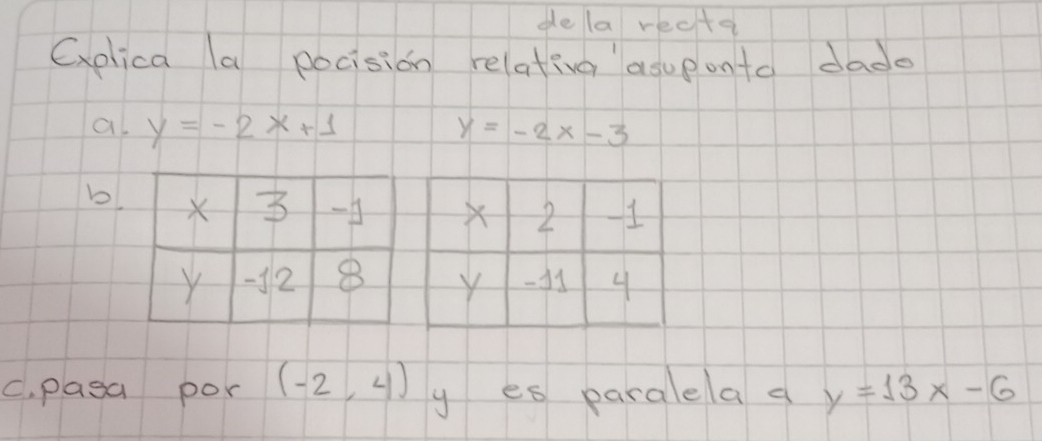 de la recta
Explica la pocisión relativa asuponto dado
a. y = -2x+1 y = -2x-3
b. x 3 -1 x 2 -1
y -12 8 y -11 4
c. pasa por (-2, 4) y es paralela a y = 13x - 6